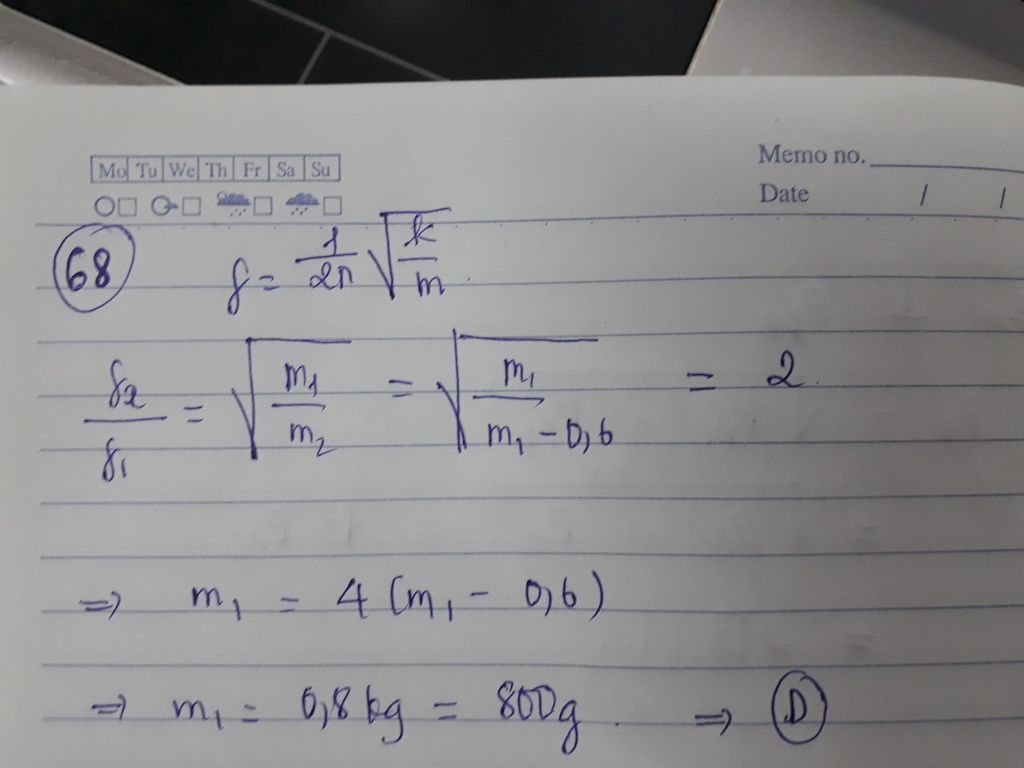 Memo no.
Mo Tu We Th Fr Sa Su
Date / /
68 f = 1/2π √(k/m)
f₂/f₁ = √(m₁/m₂) = √(m₁/(m₁ - 0,6)) = 2.
⇒ m₁ = 4 (m₁ - 0,6)
⇒ m₁ = 0,8 kg = 800g. ⇒ D